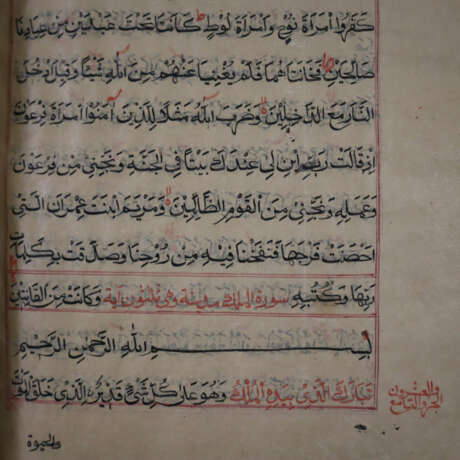 كَفَرُوا امْرَأَةَ نُوحٍ وَامْرَأَةَ لُوطٍ كَانَتَا تَحْتَ عَبْدَيْنِ مِنْ عِبَادِنَا
صَالِحَيْنِ فَخَانَتَاهُمَا فَلَمْ يُغْنِيَا عَنْهُمَا مِنَ اللهِ شَيْئًا وَقِيلَ ادْخُلَا
النَّارَ مَعَ الدَّاخِلِينَ وَضَرَبَ اللهُ مَثَلًا لِلَّذِينَ آمَنُوا امْرَأَةَ فِرْعَوْنَ
اِذْ قَالَتْ رَبِّ ابْنِ لِي عِنْدَكَ بَيْتًا فِي الْجَنَّةِ وَنَجِّنِي مِنْ فِرْعَوْنَ
وَعَمَلِهِ وَنَجِّنِي مِنَ الْقَوْمِ الظَّالِمِينَ وَمَرْيَمَ ابْنَتَ عِمْرَانَ الَّتِي
اَحْصَنَتْ فَرْجَهَا فَنَفَخْنَا فِيهِ مِنْ رُوحِنَا وَصَدَّقَتْ بِكَلِمَاتِ
رَبِّهَا وَكُتُبِهِ سورة الملك وهي ثلثون آية وَكَانَتْ مِنَ الْقَانِتِينَ
بِسْمِ اللهِ الرَّحْمٰنِ الرَّحِيمِ
تَبَارَكَ الَّذِي بِيَدِهِ الْمُلْكُ وَهُوَ عَلَى كُلِّ شَيْءٍ قَدِيرٌ الَّذِي خَلَقَ الْمَوْتَ
والحيوة